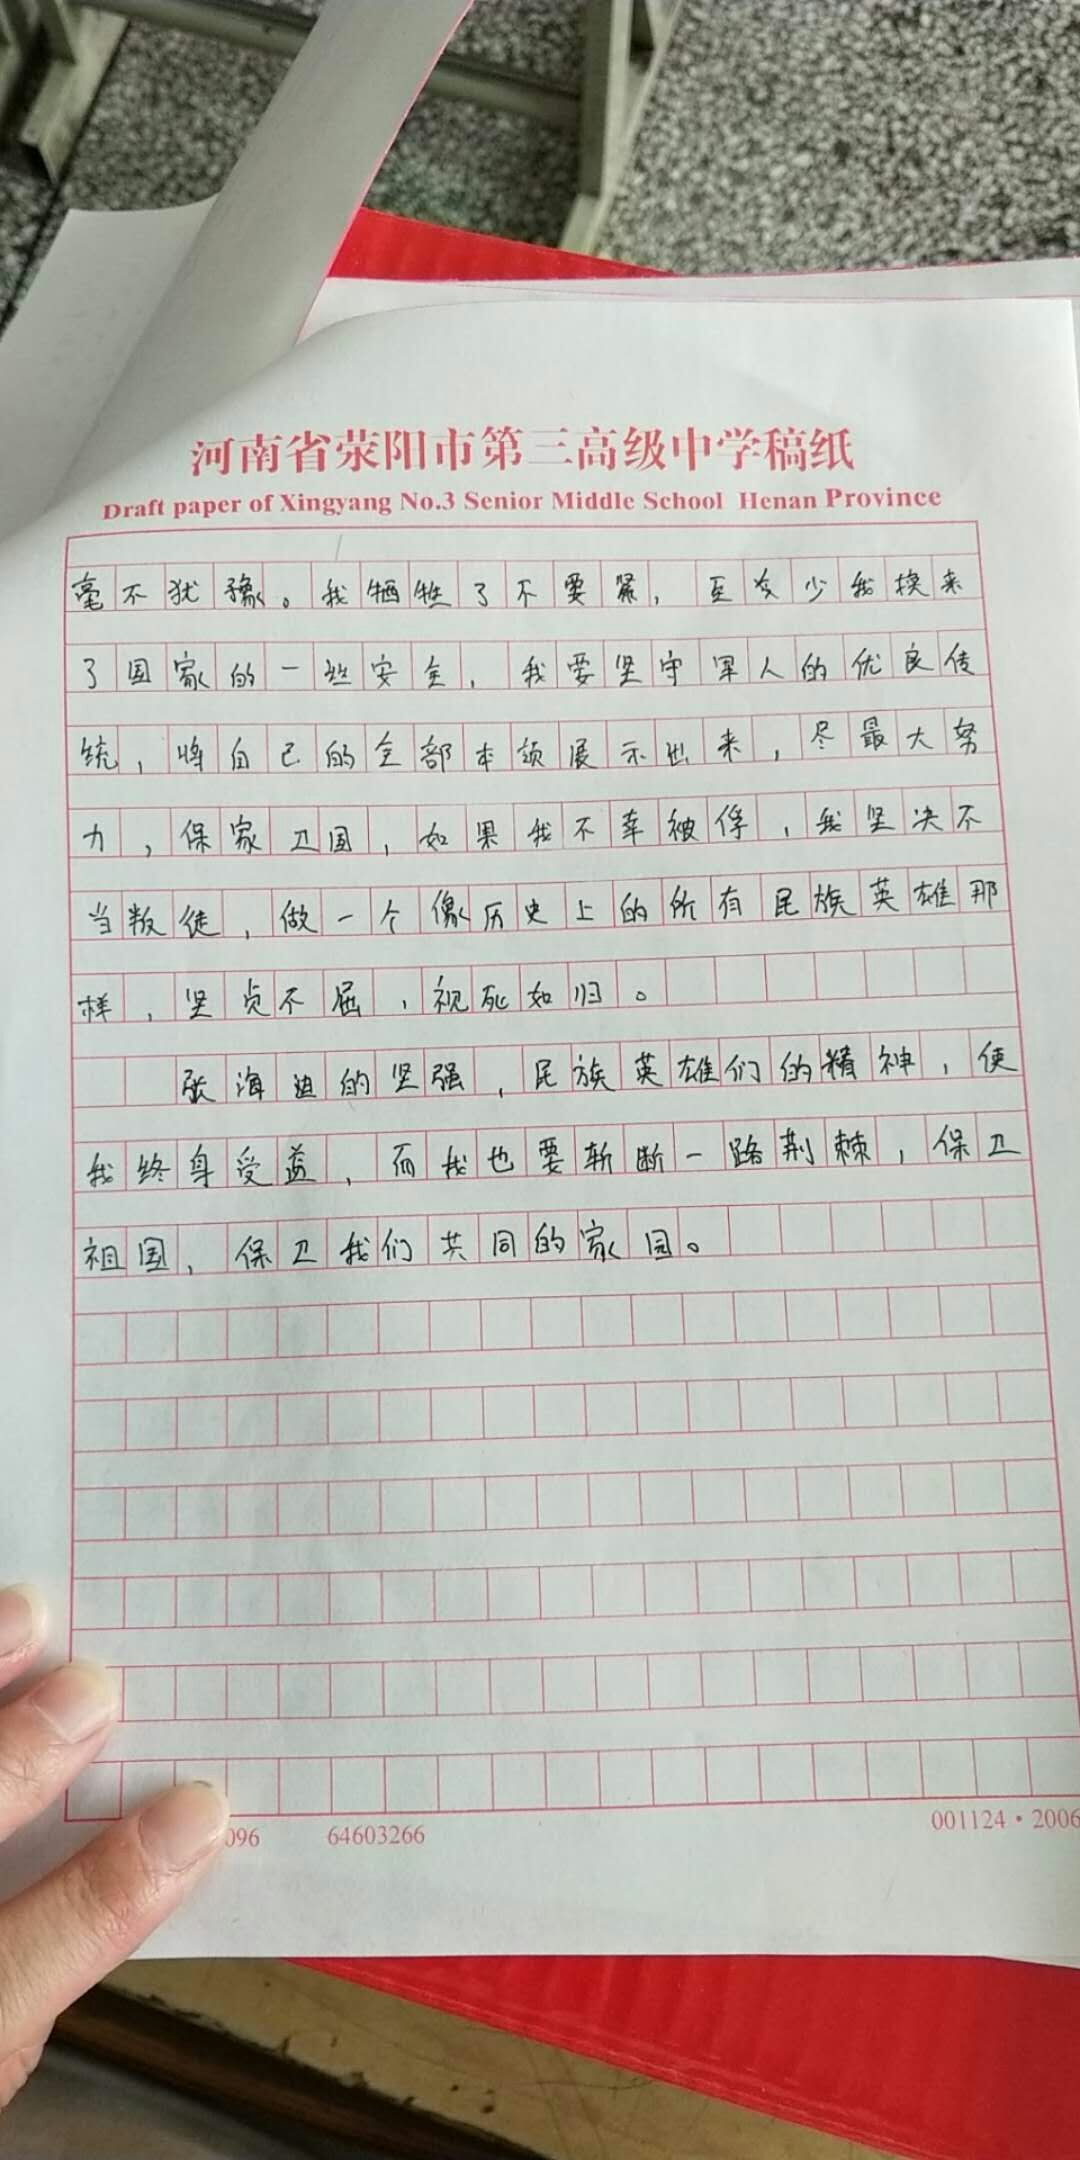 河南省荥阳市第三高级中学稿纸
Draft paper of Xingyang No.3 Senior Middle School Henan Province
毫不犹豫。我牺牲了不要紧，至少我换来
了国家的一丝安全，我要坚守军人的优良传
统，将自己的全部本领展示出来，尽最大努
力，保家卫国，如果我不幸被俘，我坚决不
当叛徒，做一个像历史上的所有民族英雄那
样，坚贞不屈，视死如归。
张海迪的坚强，民族英雄们的精神，使
我终身受益，而我也要斩断一路荆棘，保卫
祖国，保卫我们共同的家园。
096 64603266 001124·2006